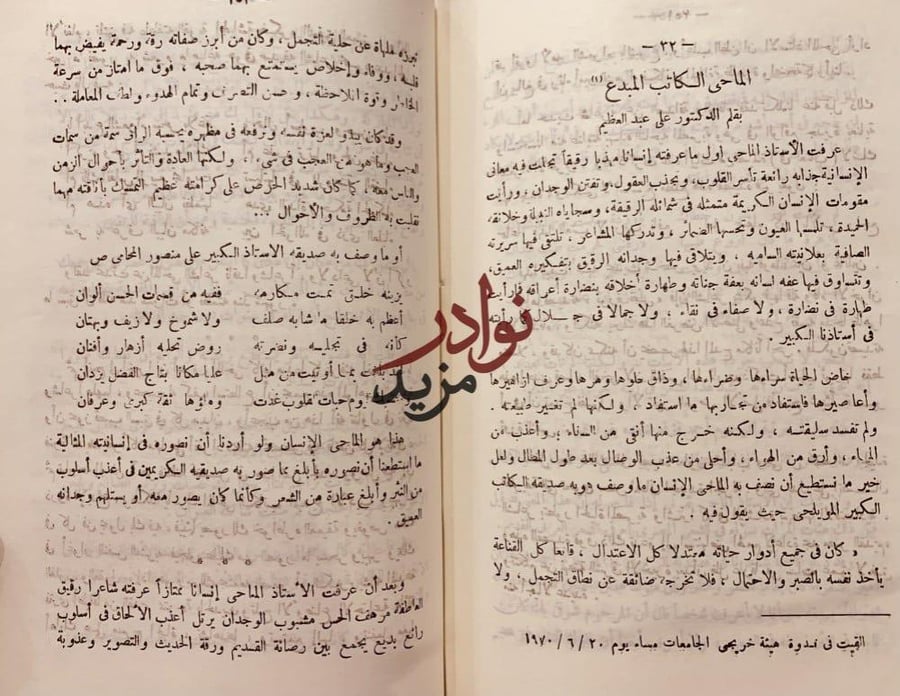 — ٣٢ —
الماحى الكاتب المبدع (١)
بقلم الدكتور على عبد العظيم
عرفت الأستاذ الماحى أول ما عرفته إنسانا مهذبا رقيقاً تجلت فيه معانى
الإنسانية جذابه رائعة تأسر القلوب، وتجذب العقول، وتفتن الوجدان، ورأيت
مقومات الإنسان الكريمة متمثله فى شمائله الرقيقة، وسجاياه النبيلة وخلائقه
الحميدة، تلمسها العيون وتحسها الضمائر، وتدركها المشاعر، تلتقى فيها سريرته
الصافية بعلانيته الساميه، ويتلاقى فيها وجدانه الرقيق بتفكيره العميق،
وتتساوق فيها عفه لسانه بعفة جنانه وطهارة أخلاقه بنضارة أعراقه فما رأيت
طهارة فى نضارة، ولا صفاء فى نقاء، ولا جمالا فى جلال كما رأيته
فى أستاذنا الكبير.
خاض الحياة سراءها وضراءها، وذاق حلوها ومرها وعرف أزاهيرها
وأعاصيرها فاستفاد من تجاربها ما استفاد، ولكنها لم تغير طبيعته.
ولم تفسد سليقته، ولكنه خرج منها أنقى من السناء، وأعذب من
الماء، وأرق من الهواء، وأحلى من عذب الوصال بعد طول المطال ولعل
خير ما نستطيع أن نصف به الماحى الإنسان ما وصفه به صديقه الكاتب
الكبير المويلحى حيث يقول فيه.
« كان فى جميع أدوار حياته معتدلا كل الاعتدال، قانعا كل القناعة
يأخذ نفسه بالصبر والاحتمال، فلا تخرجه ضائقة عن نطاق التجمل، ولا
ألقيت فى ندوة هيئة خريجى الجامعات مساء يوم ٢٠ / ٦ / ١٩٧٠
عن حلية التجمل، وكان من أبرز صفاته رقة ورحمة يفيض بهما
قلبه، ووفاء وإخلاص يستمتع بهما صحبه، فوق ما امتاز من سرعة
الخاطر وقوة الملاحظة، وحسن التصرف وتمام الهدوء ولطف المعاملة..
وقد كان يبدو لعزة نفسه وترفعه فى مظهره يحسبه الرائى سمة من سمات
العجب وما هو من العجب فى شىء، ولكنها العادة والتأثر بأحوال الزمن
والناس معه، كما كان شديد الحرص على كرامته عظيم التمسك بأناقته مهما
تقلبت به الظروف والأحوال...
أو ما وصف به صديقه الاستاذ الكبير على منصور المحامى ص
يزينه خلق تمت مكارمه ففيه من قسمات الحسن ألوان
أعظم به خلقا ما شابه صلف ولا شموخ ولا زيف وبهتان
كأنه فى تجليه ونضرته روض تحليه أزهار وأفنان
بما أوتيت من مثل عليا مكانا بتاج الفضل يزدان
حبات قلوب غدت وملؤها ثقة كبرى وعرفان
هذا هو الماحى الإنسان ولو أردنا أن نصوره فى إنسانيته المثالية
ما استطعنا أن نصوره بأبلغ مما صور به صديقيه الكريمين فى أعذب أسلوب
من النثر وأبلغ عبارة من الشعر وكأنما كان يصور معه أو يستلهم وجدانه
العميق.
* * *
وبعد أن عرفت الأستاذ الماحى إنسانا ممتازاً عرفته شاعرا رقيق
العاطفة مرهف الحس مشبوب الوجدان يرتل أعذب الألحان فى أسلوب
رائع بديع يجمع بين رصانة القديم ورقة الحديث والتصوير وعذوبة
نوادر
مزيد